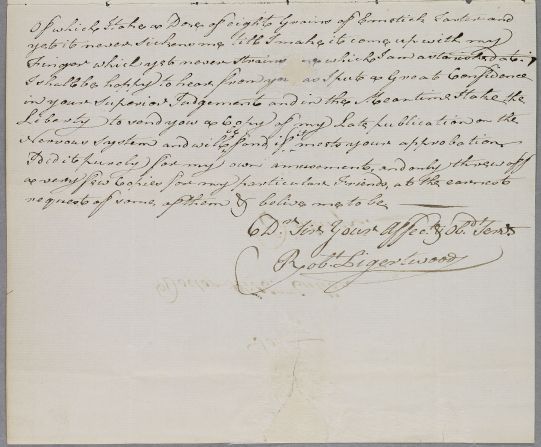 of which I take a Dose of eight Grains of Emetick Tartar and
yet it never Sickens me till I make it come up with my
Finger which yet never Strains me which I am astonished at.
I shall be happy to hear from you as I put a Great Confidence
in your Superior Judgement and in the Mean time I take the
Liberty to send you a Copy of my late publication on the
Nervous System and will be fond if it meets your approbation
I did it purely for my own amusement, and only threw off
a very few Copies for my particular Friends, at the earnest
request of some of them & belive me to be
Dr. Sir Your Affect. & Obdt. Servt.
Robt. Ligertwood